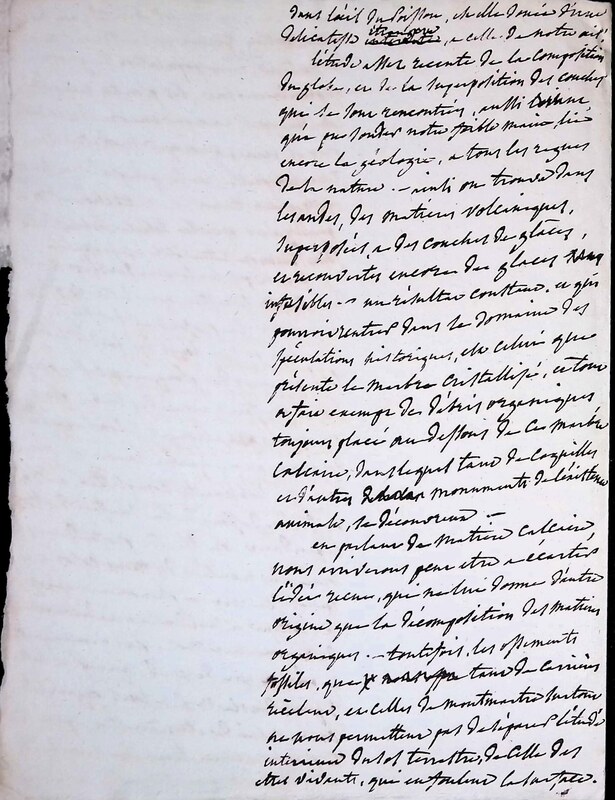 dans l'œil du poisson, est elle douée d'une
délicatesse étrangère, a celle de notre œil?
l'étude assez recente de la composition
du globe, et de la superposition des couches
qui se sont rencontrées, aussi
que pu sonder notre foible main, lie
encore la géologie, a tous les regnes
de la nature. - ainsi on trouve dans
les andes, des matieres volcaniques,
superposées, a des couches de glaces,
et recouvertes encore des glaces
- un résultat constant, et qui
pourroit entrer dans le domaine des
spéculations historiques, est celui que
présente le marbre cristallisé, et tout
a fait exempt des débris organiques
toujours placé au dessous de ces marbres
calcaire, dans lequel tant de coquilles
et d'autres monuments de l'existence
animale, se découvrent. -
en parlant de matiere calcaire,
nous arriverons peut etre a écarter
l'idée recue, qui ne lui donne d'autre
origine que la décomposition des matieres
organiques. - toutefois, les ossements
fossiles, que tant de carrieres
récelent, et celles de montmartre surtout
ne nous permettent pas de séparer l'étude
interieure du sol terrestre, de celle des
etres vivants, qui en foulent la surface.